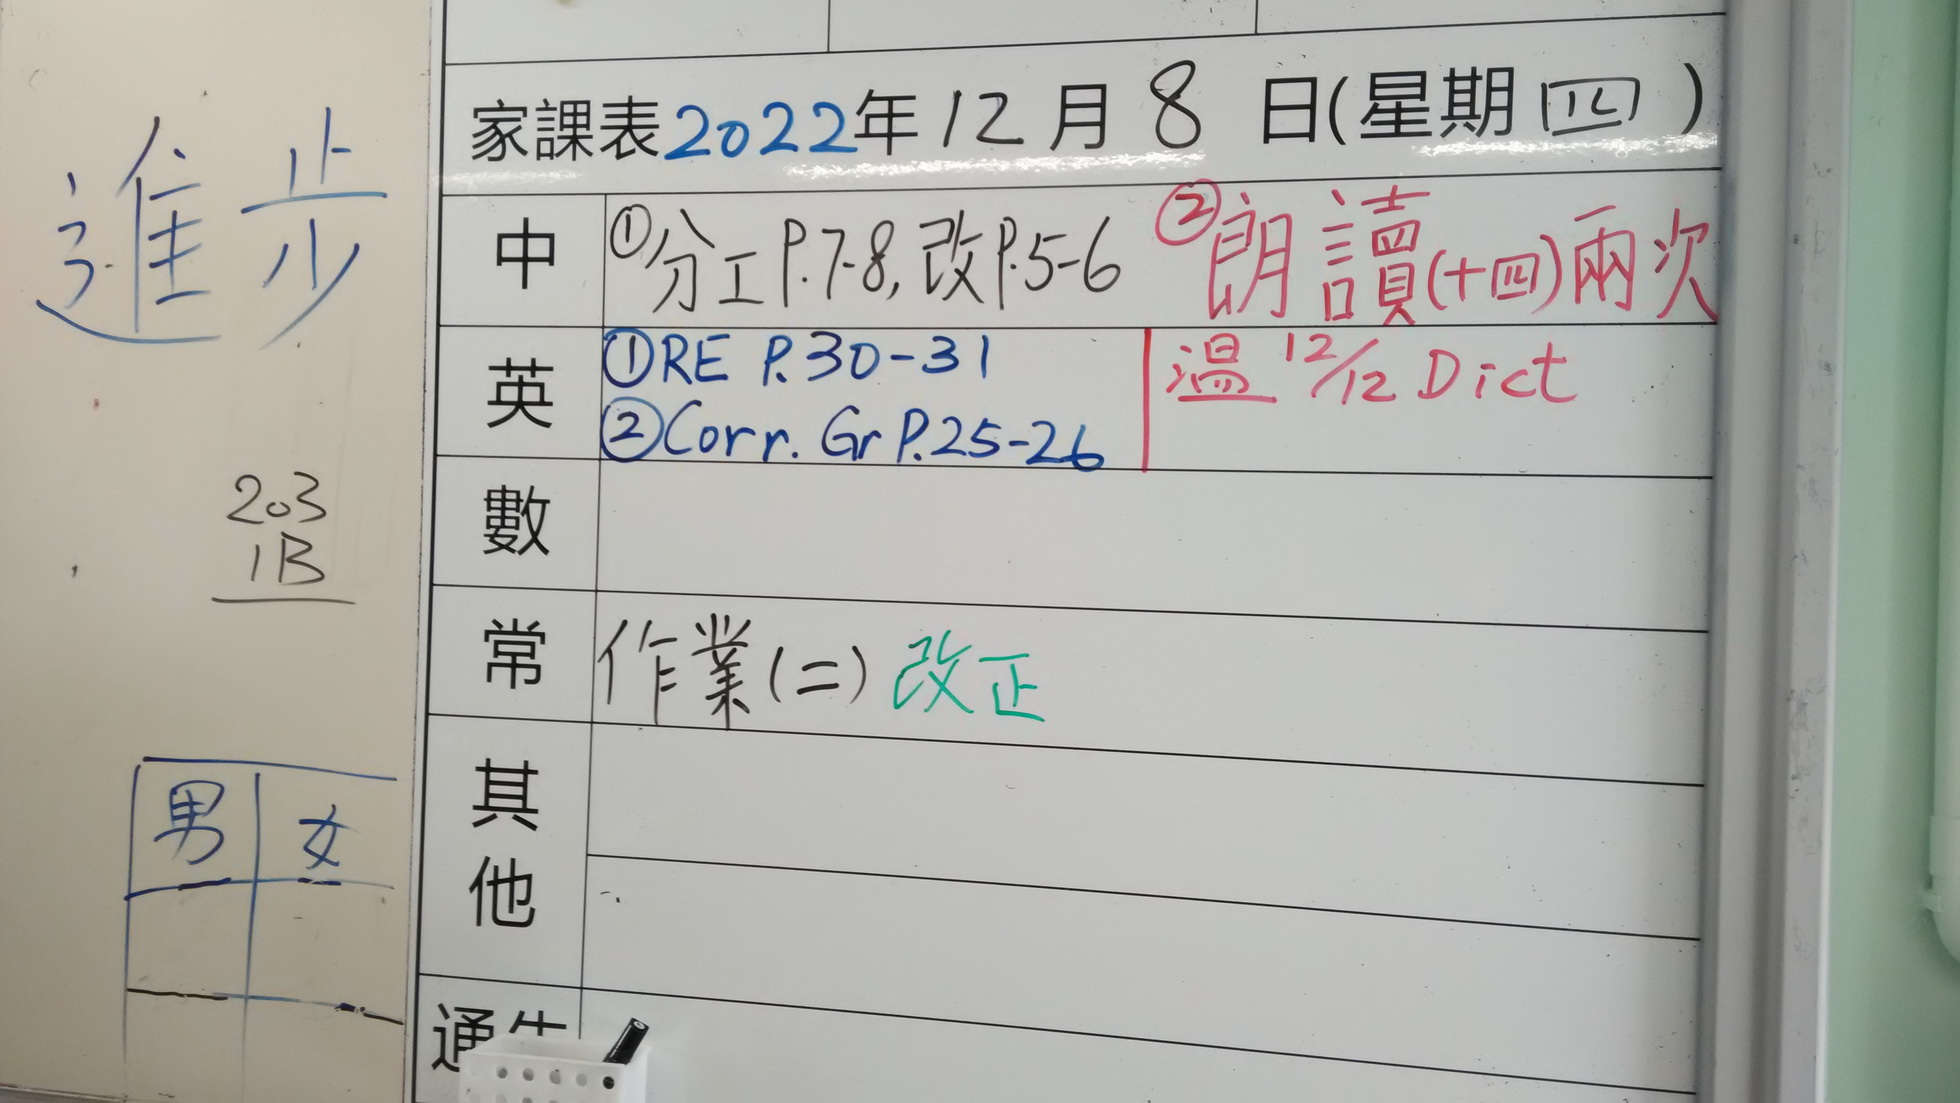 進步
203
1B
男 女
家課表2022年12月8日(星期四)
中 ①分工P.7-8,改P.5-6 ②朗讀(十四)兩次
英 ①RE P.30-31 溫12/12 Dict
②Corr. Gr P.25-26
數
常 作業(二)改正
其他
通告